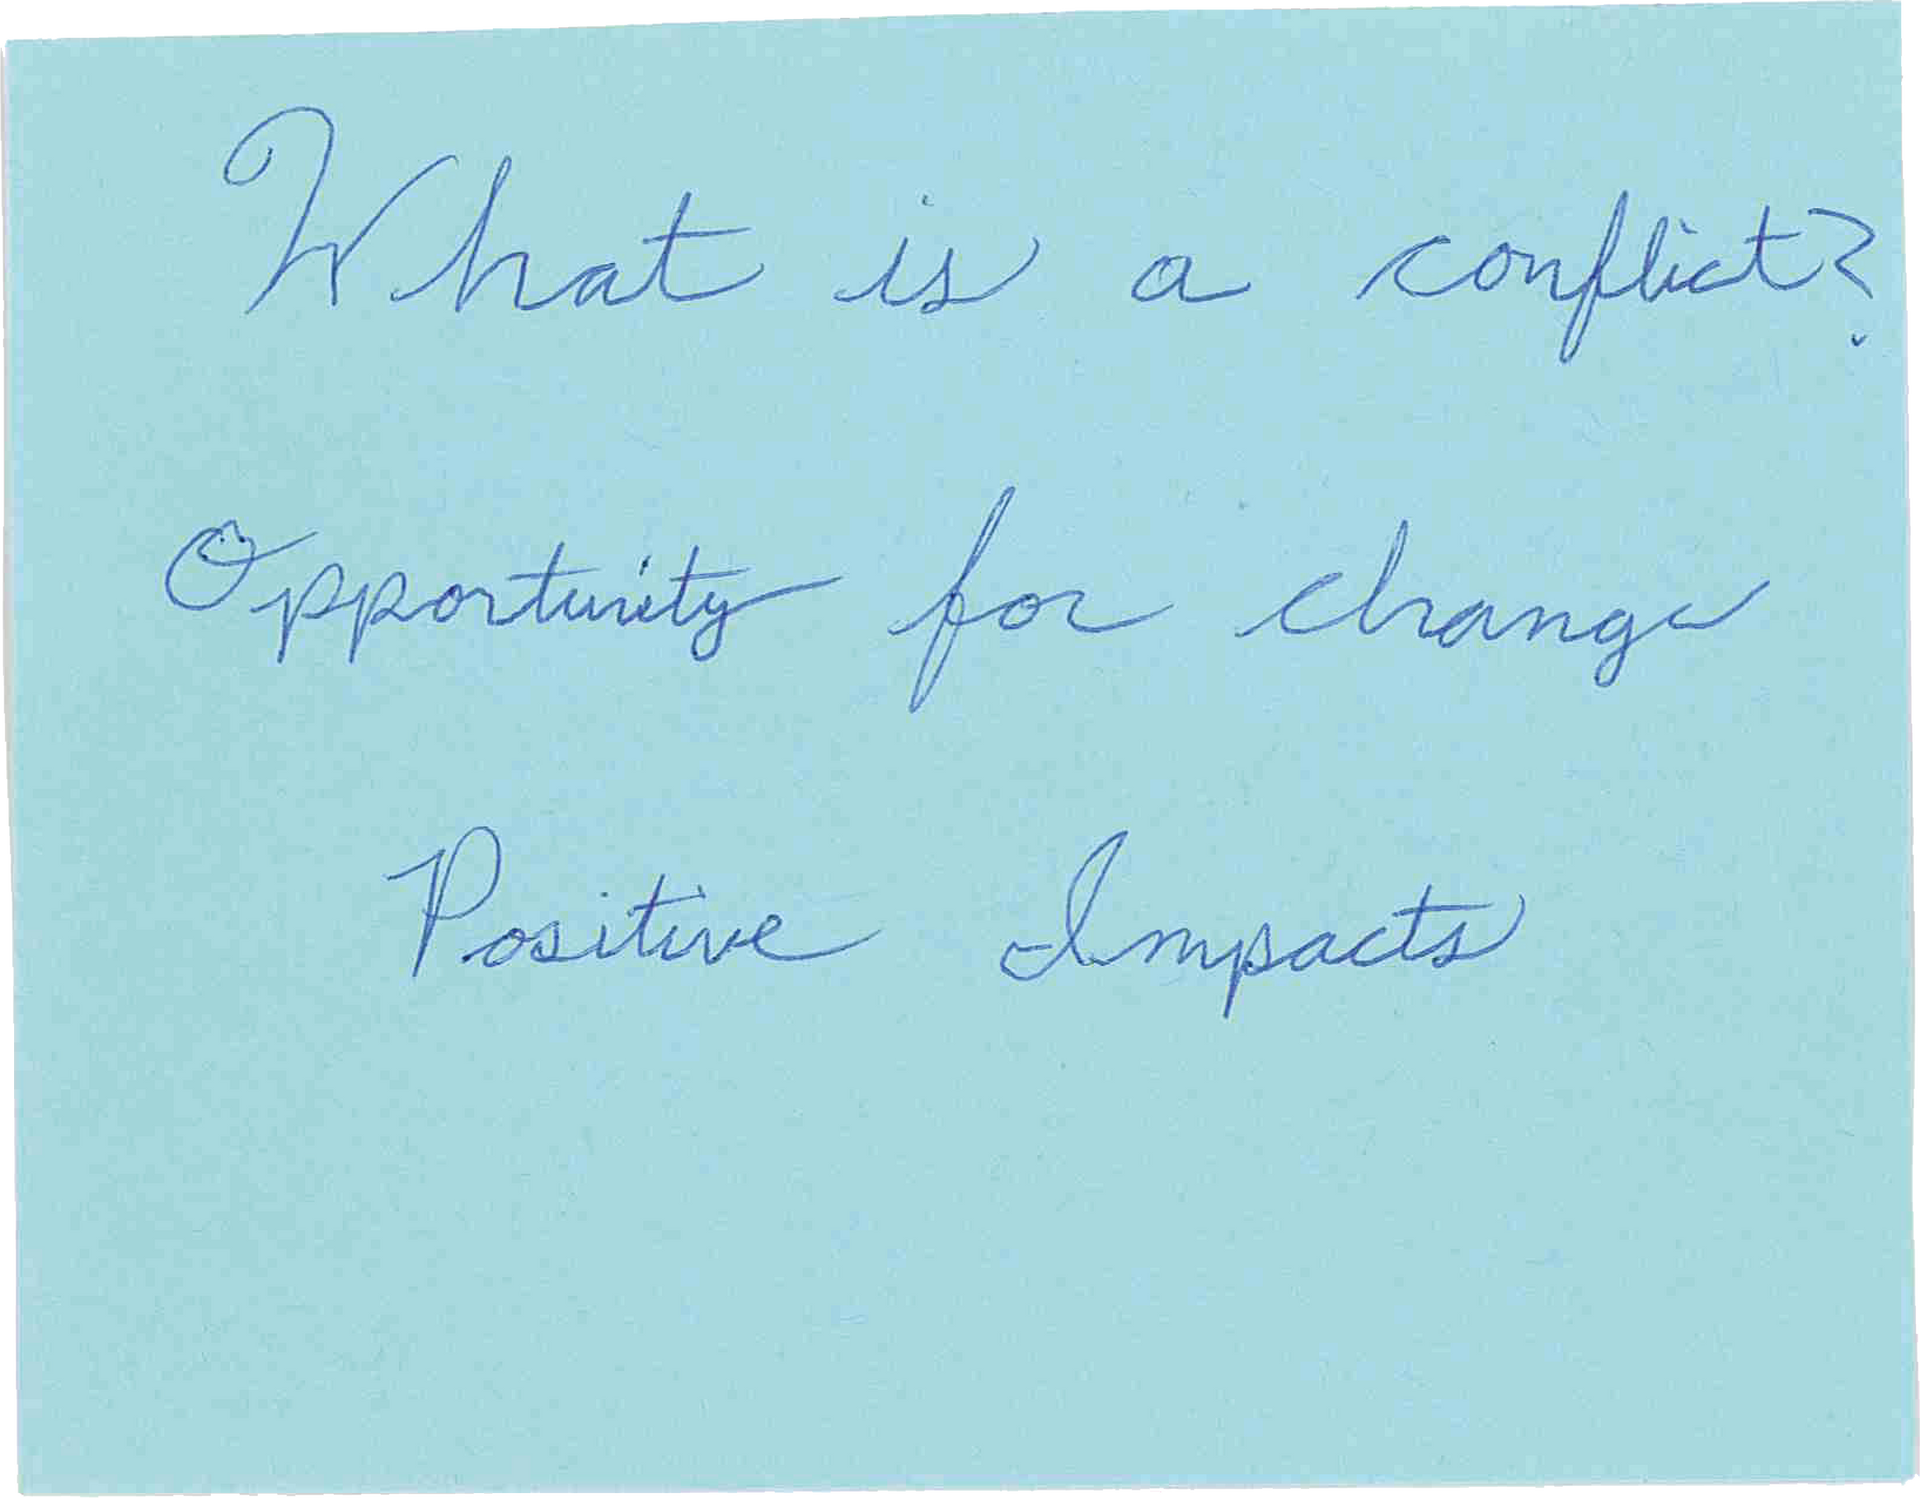 What is a conflict?
Opportunity for change
Positive Impacts